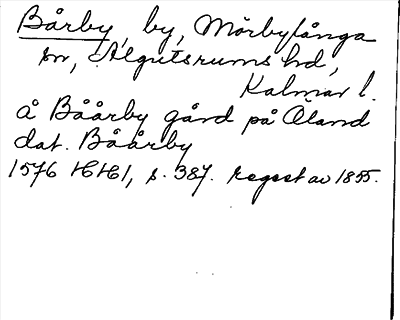 Bårby, by, Mörbylånga
sn, Algutsrums hd,
Kalmar l.
å Båårby gård på Öland
dat. Båårby
1576 HH1, s. 387. Regest av 1855.